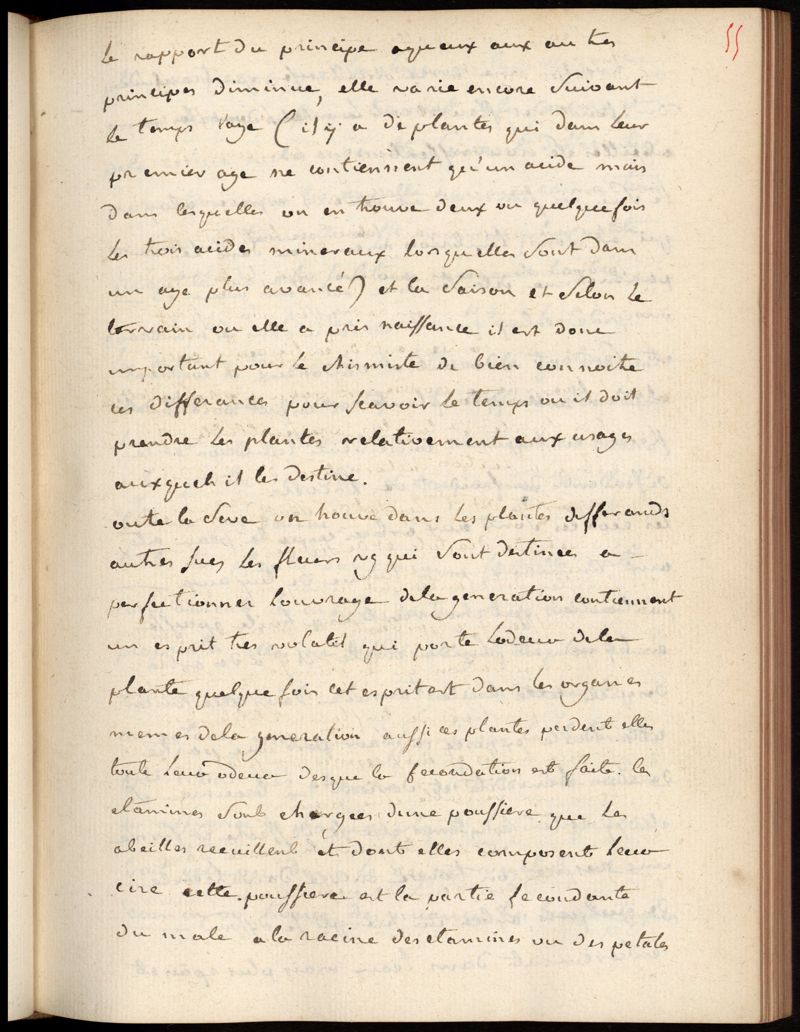 55
le rapport du principe aqueux aux autres
principes diminue, elle varie encore suivant
le temps l'age (il y a de plantes qui dans leur
premier age ne contiennent qu'un acide mais
dans lesquelles on en trouve deux ou quelquefois
les trois acides mineraux lorsquelles sont dans
un age plus avancé) et la saison et selon le
terrain ou elle a pris naissance il est donc
important pour le chismiste de bien connoitre
ces differances pour scavoir le temps ou il doit
prendre les plantes relativement aux usages
auxquels il les destine.
outre la seve on trouve dans les plantes differands
autres sucs les fleurs vg qui sont destinees a
perfectionner louvrage dela generation contiennent
un esprit tres volatil qui porte lodeur dela
plante quelque fois cet esprit est dans les organes
memes dela generation aussi ces plantes perdent elles
toute leur odeur des que la fecondation est faite. les
etamines sont chargées dune poussiere que les
abeilles recuillent et dont elles composent leur
cire cette poussiere est la partie fecondante
du male a la racine des etamines ou des petales